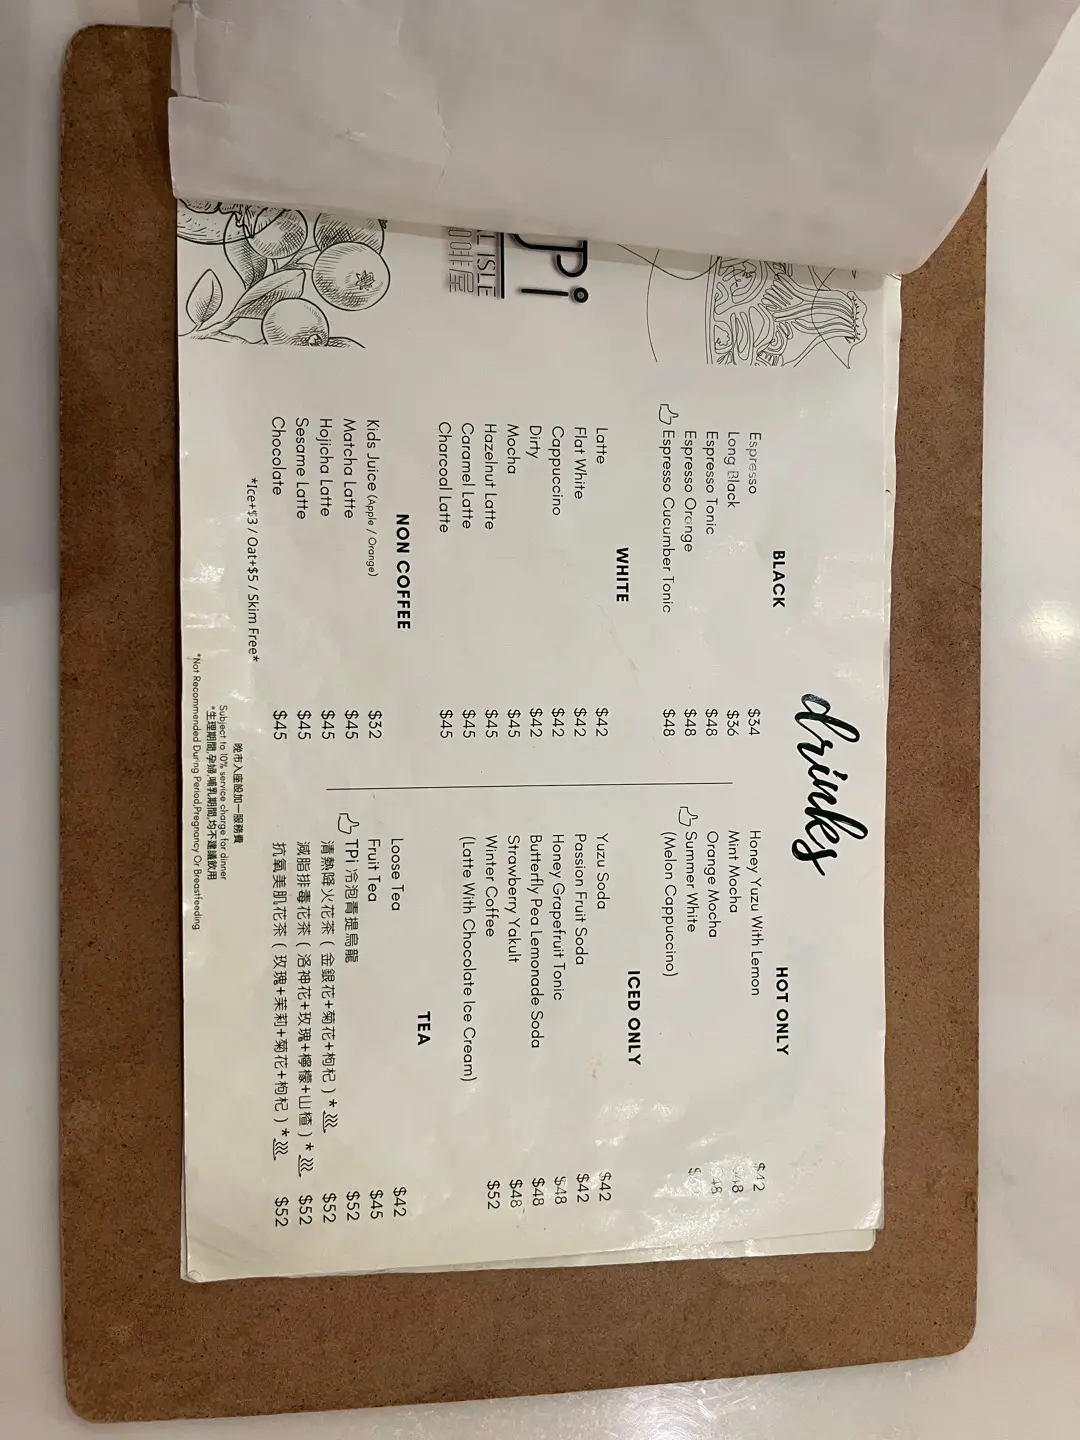 TPi
L ISLE
啡屋
drinks
BLACK
Espresso $34
Long Black $36
Espresso Tonic $48
Espresso Orange $48
Espresso Cucumber Tonic $48
WHITE
Latte $42
Flat White $42
Cappuccino $42
Dirty $42
Mocha $45
Hazelnut Latte $45
Caramel Latte $45
Charcoal Latte $45
NON COFFEE
Kids Juice (Apple / Orange) $32
Matcha Latte $45
Hojicha Latte $45
Sesame Latte $45
Chocolate $45
*Ice+$3 / Oat+$5 / Skim Free*
HOT ONLY
Honey Yuzu With Lemon $42
Mint Mocha $48
Orange Mocha $48
Summer White
(Melon Cappuccino)
ICED ONLY
Yuzu Soda $42
Passion Fruit Soda $42
Honey Grapefruit Tonic $48
Butterfly Pea Lemonade Soda $48
Strawberry Yakult $48
Winter Coffee $52
(Latte With Chocolate Ice Cream)
TEA
Loose Tea $42
Fruit Tea $45
TPi 冷泡青提烏龍 $52
清熱降火花茶 ( 金銀花+菊花+枸杞 ) * $52
減脂排毒花茶 ( 洛神花+玫瑰+檸檬+山楂 ) * $52
抗氧美肌花茶 ( 玫瑰+茉莉+菊花+枸杞 ) * $52
晚市入座設加一服務費
Subject to 10% service charge for dinner
*生理期間,孕婦,哺乳期間,均不建議飲用
*Not Recommended During Period,Pregnancy Or Breastfeeding